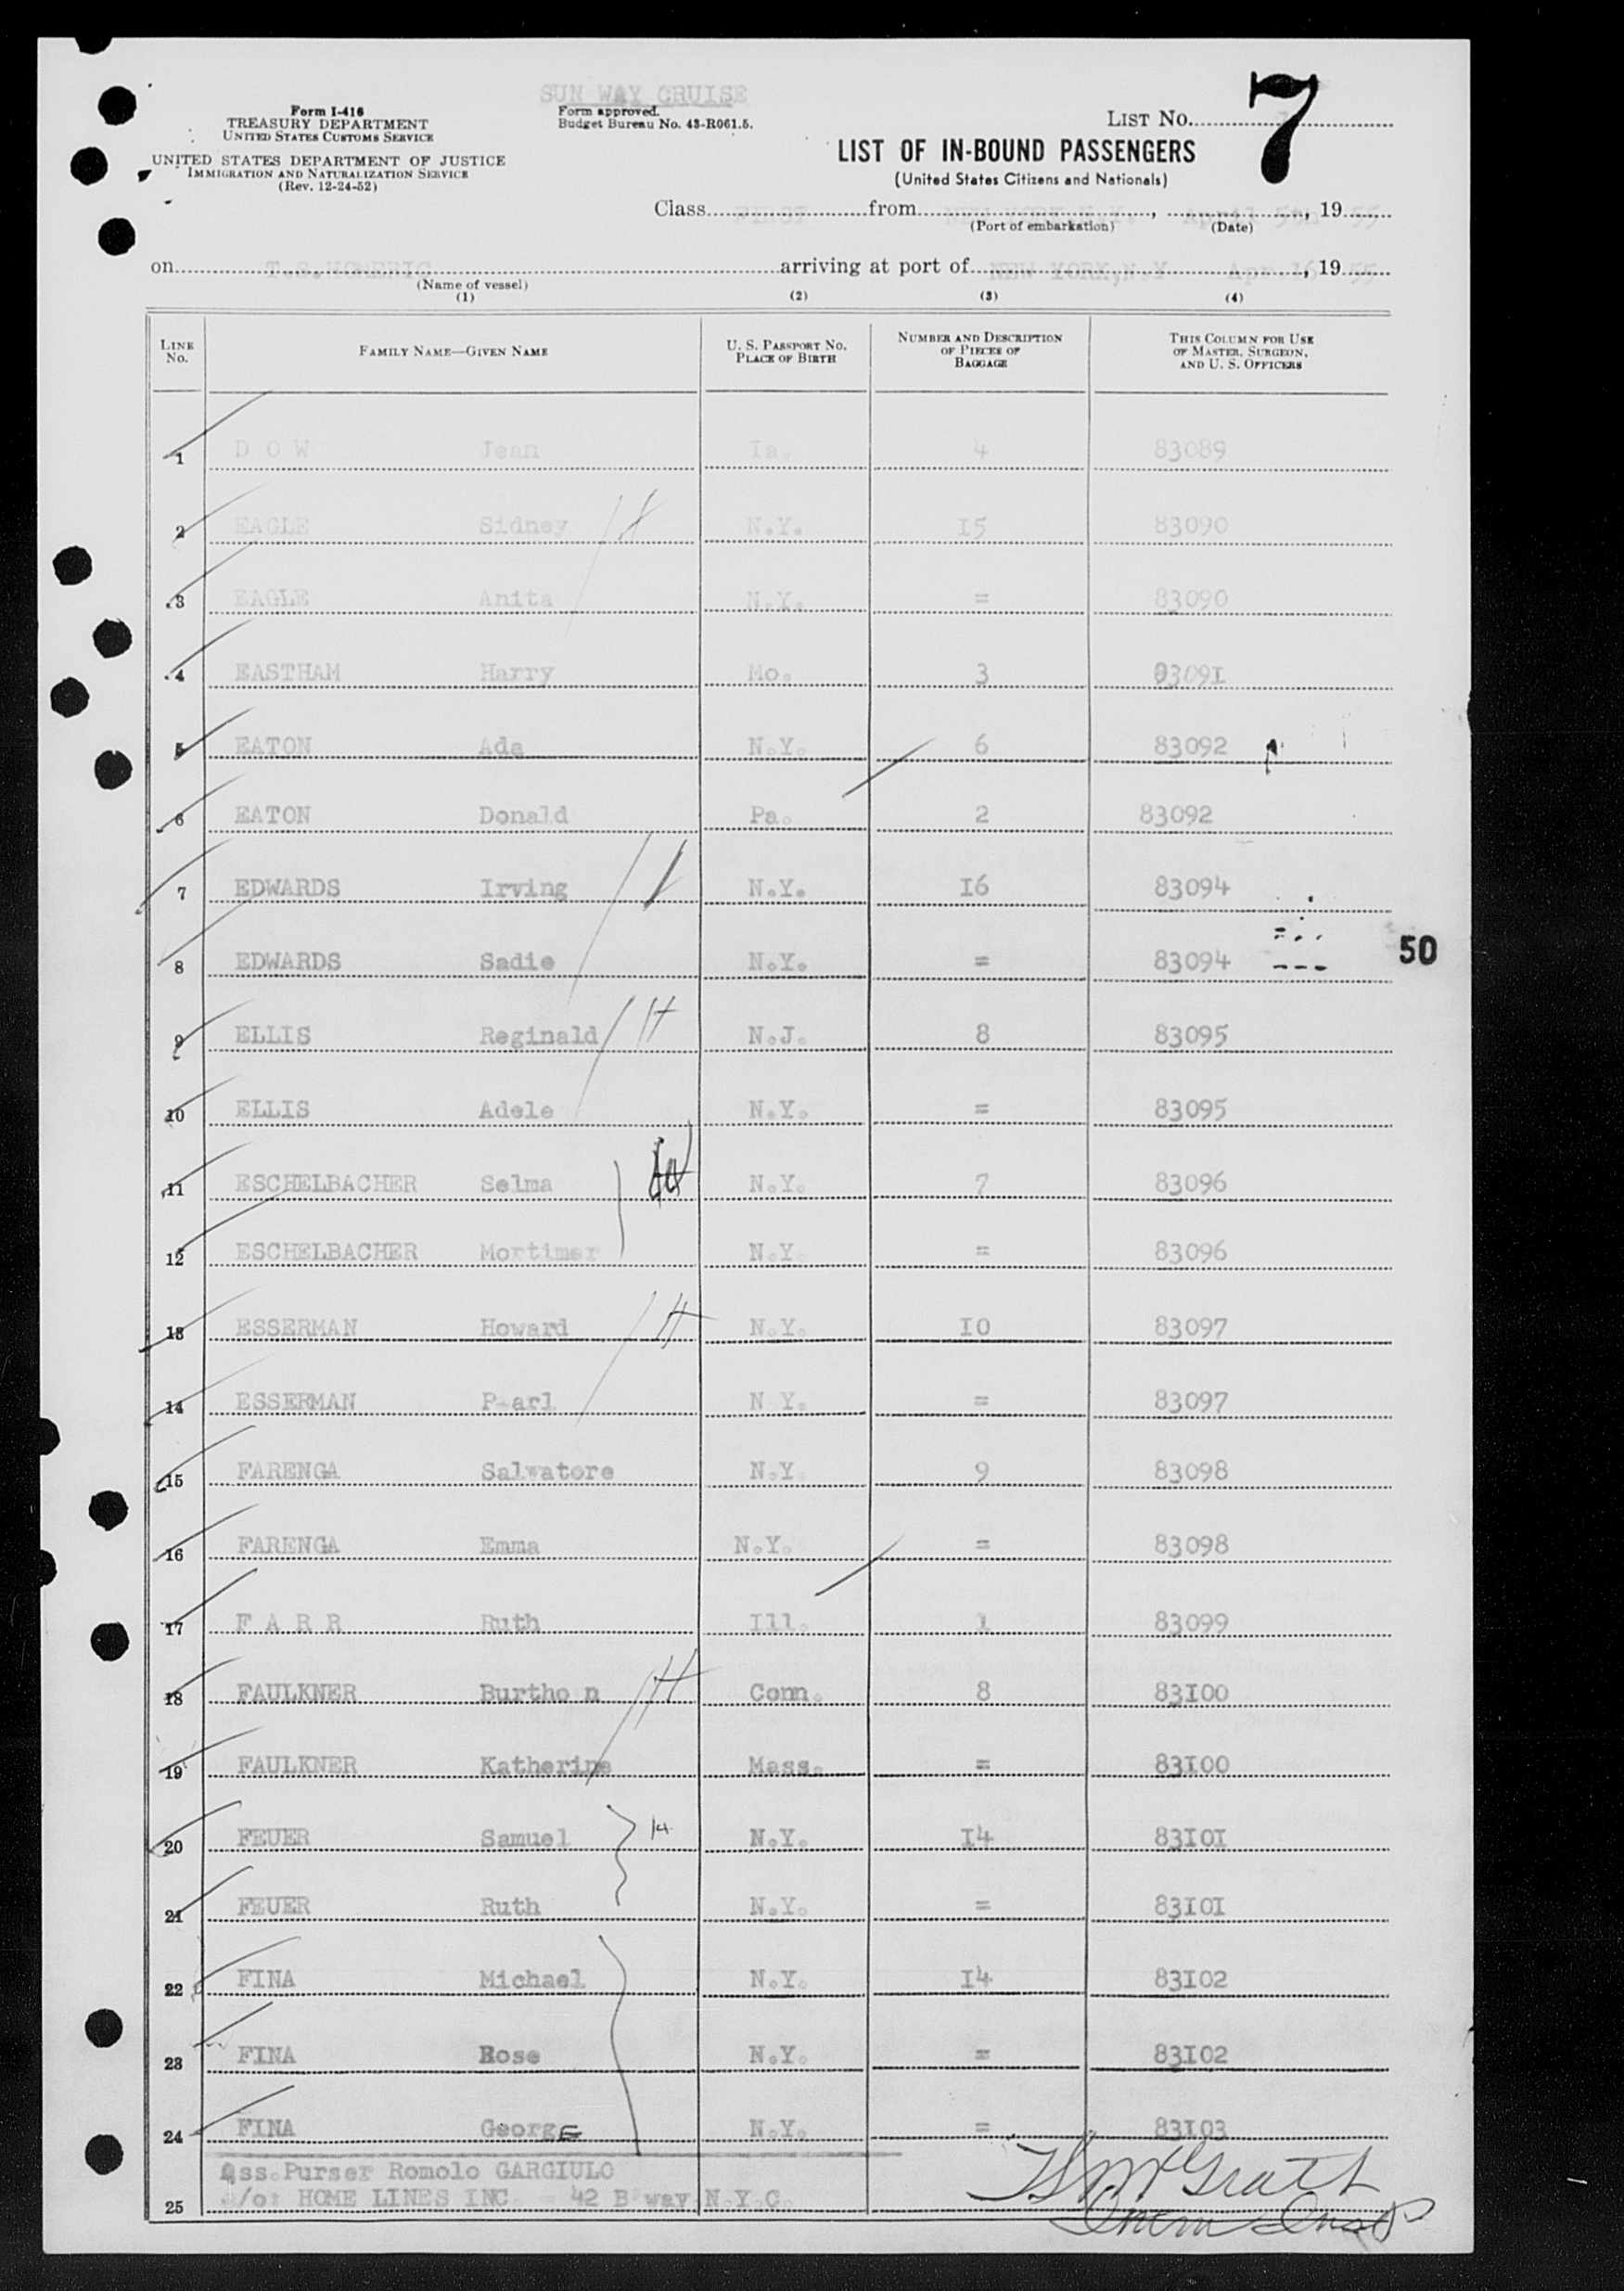 SUN WAY CRUISE
Form I-416
TREASURY DEPARTMENT
UNITED STATES CUSTOMS SERVICE
UNITED STATES DEPARTMENT OF JUSTICE
IMMIGRATION AND NATURALIZATION SERVICE
(Rev. 12-24-52)
Form approved.
Budget Bureau No. 43-R061.5.
LIST No. 7
LIST OF IN-BOUND PASSENGERS
(United States Citizens and Nationals)
Class FIRST from NEW YORK, N.Y., April 5th, 19 55
(Port of embarkation) (Date)
on T.S. HOMERIC arriving at port of NEW YORK, N.Y Apr. 16, 19 55
(Name of vessel)
(1) (2) (3) (4)
LINE No. FAMILY NAME—GIVEN NAME U. S. PASSPORT NO. PLACE OF BIRTH NUMBER AND DESCRIPTION OF PIECES OF BAGGAGE THIS COLUMN FOR USE OF MASTER, SURGEON, AND U. S. OFFICERS
1 D O W Jean Ia. 4 83089
2 EAGLE Sidney N.Y. 15 83090
3 EAGLE Anita N.Y. = 83090
4 EASTHAM Harry Mo. 3 83091
5 EATON Ada N.Y. 6 83092
6 EATON Donald Pa. 2 83092
7 EDWARDS Irving N.Y. 16 83094
8 EDWARDS Sadie N.Y. = 83094
50
9 ELLIS Reginald N.J. 8 83095
10 ELLIS Adele N.Y. = 83095
11 ESCHELBACHER Selma N.Y. 7 83096
12 ESCHELBACHER Mortimer N.Y. = 83096
13 ESSERMAN Howard N.Y. 10 83097
14 ESSERMAN P arl N Y. = 83097
15 FARENGA Salvatore N.Y. 9 83098
16 FARENGA Emma N.Y. = 83098
17 F A R R Ruth Ill. 1 83099
18 FAULKNER Burtho n Conn. 8 83100
19 FAULKNER Katherine Mass. = 83100
20 FEUER Samuel N.Y. 14 83101
21 FEUER Ruth N.Y. = 83101
22 FINA Michael N.Y. 14 83102
23 FINA Rose N.Y. = 83102
24 FINA George N.Y. = 83103
Ass.Purser Romolo GARGIULO
25 c/o: HOME LINES INC. - 42 B'way,N.Y.C.